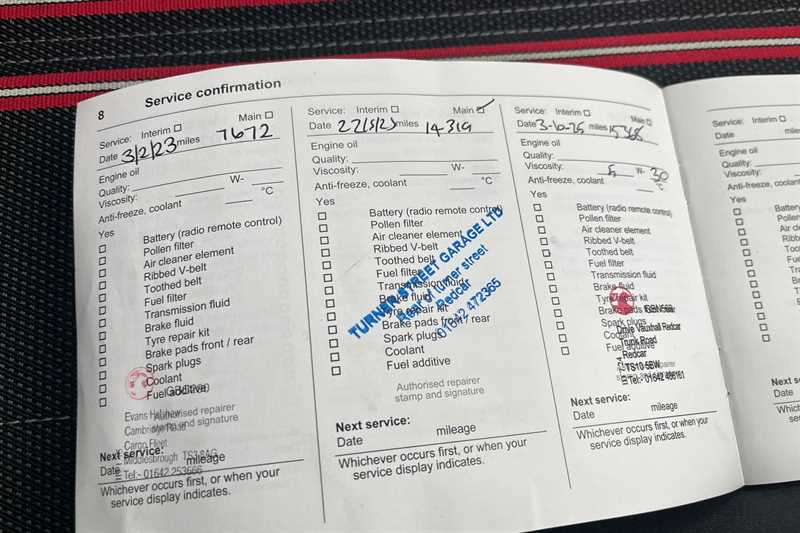 8 Service confirmation
Service: Interim Main
Date 3/2/23 miles 7672
Engine oil
Quality:
Viscosity: W-
Anti-freeze, coolant °C
Yes
Battery (radio remote control)
Pollen filter
Air cleaner element
Ribbed V-belt
Toothed belt
Fuel filter
Transmission fluid
Brake fluid
Tyre repair kit
Brake pads front / rear
Spark plugs
Coolant
Fuel additive
Authorised repairer
stamp and signature
Evans Halshaw
Cambridge Road
Cargo Fleet
Middlesbrough TS3 8AG
Tel:- 01642 253666
Next service:
Date mileage
Whichever occurs first, or when your
service display indicates.
Service: Interim Main
Date miles
Engine oil
Quality:
Viscosity: W-
Anti-freeze, coolant °C
Yes
Battery (radio remote control)
Pollen filter
Air cleaner element
Ribbed V-belt
Toothed belt
Fuel filter
Transmission fluid
Brake fluid
Tyre repair kit
Brake pads front / rear
Spark plugs
Coolant
Fuel additive
TURNER STREET GARAGE LTD
Rear of turner street
Redcar
01642 472365
Authorised repairer
stamp and signature
Next service:
Date mileage
Whichever occurs first, or when your
service display indicates.
Service: Interim Main
Date miles 15368
Engine oil
Quality:
Viscosity: 5 W- 30
Anti-freeze, coolant °C
Yes
Battery (radio remote control)
Pollen filter
Air cleaner element
Ribbed V-belt
Toothed belt
Fuel filter
Transmission fluid
Brake fluid
Tyre repair kit
Brake pads front / rear
Spark plugs
Coolant
Fuel additive
Drive Vauxhall Redcar
Trunk Road
Redcar
TS10 5BW
Next service:
Date mileage
Whichever occurs first, or when your
service display indicates.
Service: Interim
Date
Engine oil
Quality:
Viscosity:
Anti-freeze, coolant
Yes
Next service:
Date